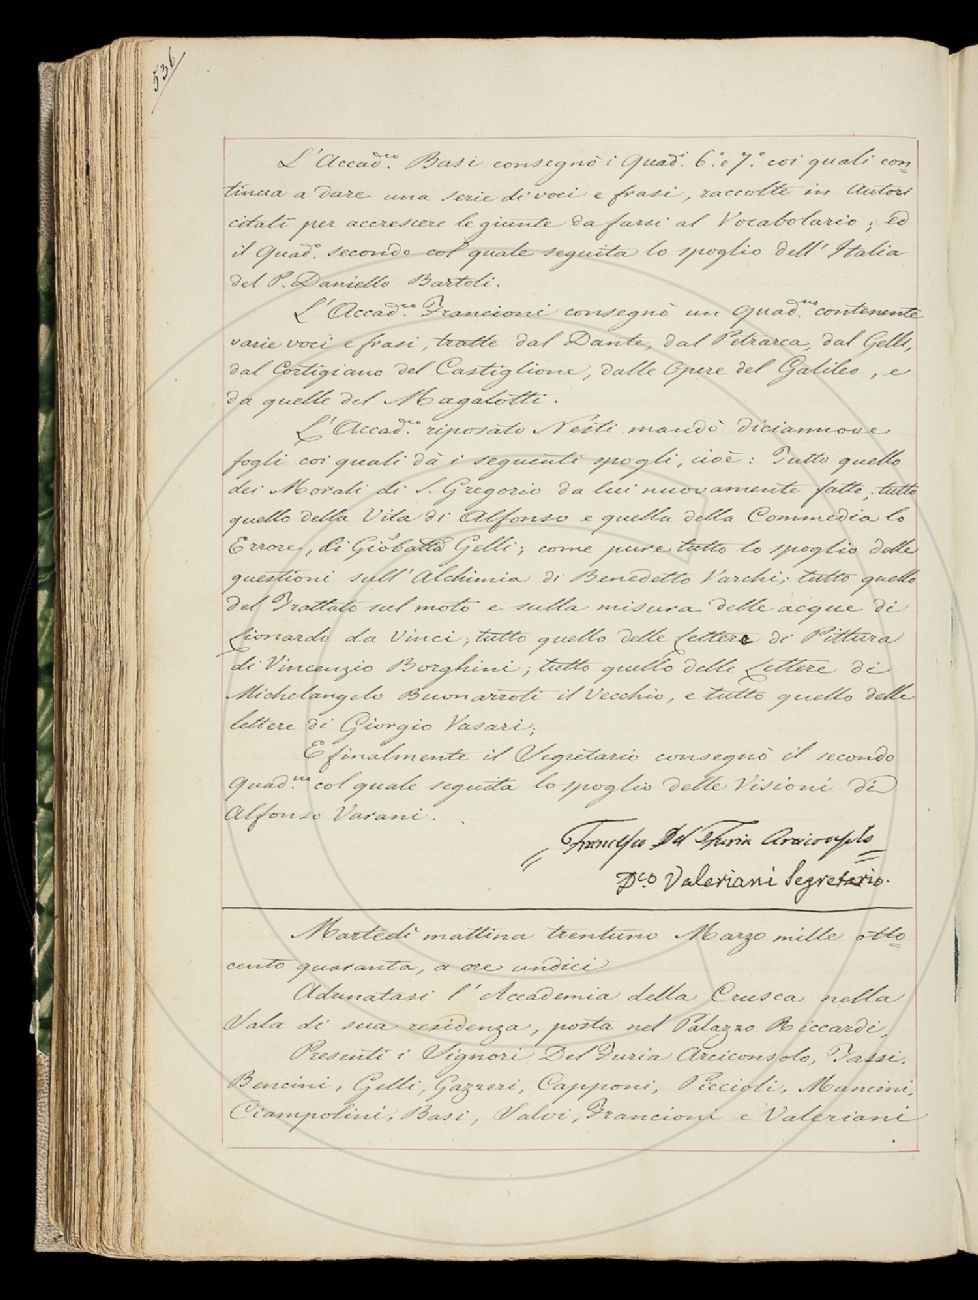 536
L'Accad.co Basi consegnò i Quad.i 6.° e 7.° coi quali con=
tinua a dare una serie di voci e frasi, raccolte in Autori
citati per accrescere le giunte da farsi al Vocabolario; ed
il Quad.o secondo col quale seguita lo spoglio dell'Italia
del P. Daniello Bartoli.
L'Accad.co Francioni consegnò un Quad.no contenente
varie voci e frasi, tratte dal Dante, dal Petrarca, dal Gelli,
dal Cortigiano del Castiglione, dalle Opere del Galileo, e
da quelle del Magalotti.
L'Accad.co riposato Nesti mandò diciannove
fogli coi quali dà i seguenti spogli, cioè: Tutto quello
dei Morali di S. Gregorio da lui nuovamente fatto, tutto
quello della Vita di Alfonso e quella della Commedia lo
Errore, di Gio: batta Gelli; come pure tutto lo spoglio delle
questioni sull'Alchimia di Benedetto Varchi; tutto quello
del Trattato sul moto e sulla misura delle acque di
Lionardo da Vinci; tutto quello delle Lettere di Pittura
di Vincenzio Borghini; tutto quello delle Lettere di
Michelangelo Buonarroti il Vecchio, e tutto quello delle
lettere di Giorgio Vasari.
E finalmente il Segretario consegnò il secondo
Quad.no col quale seguita lo spoglio delle Visioni di
Alfonso Varani.
Francesco Del Furia Arciconsolo
D.co Valeriani Segretario.
Martedì mattina trentuno Marzo mille otto=
cento quaranta, a ore undici
Adunatasi l'Accademia della Crusca nella
Sala di sua residenza, posta nel Palazzo Riccardi,
Presenti i Signori Del Furia Arciconsolo, Tassi,
Bencini, Gelli, Gazzeri, Capponi, Piccioli, Mancini,
Ciampolini, Basi, Salvi, Francioni e Valeriani